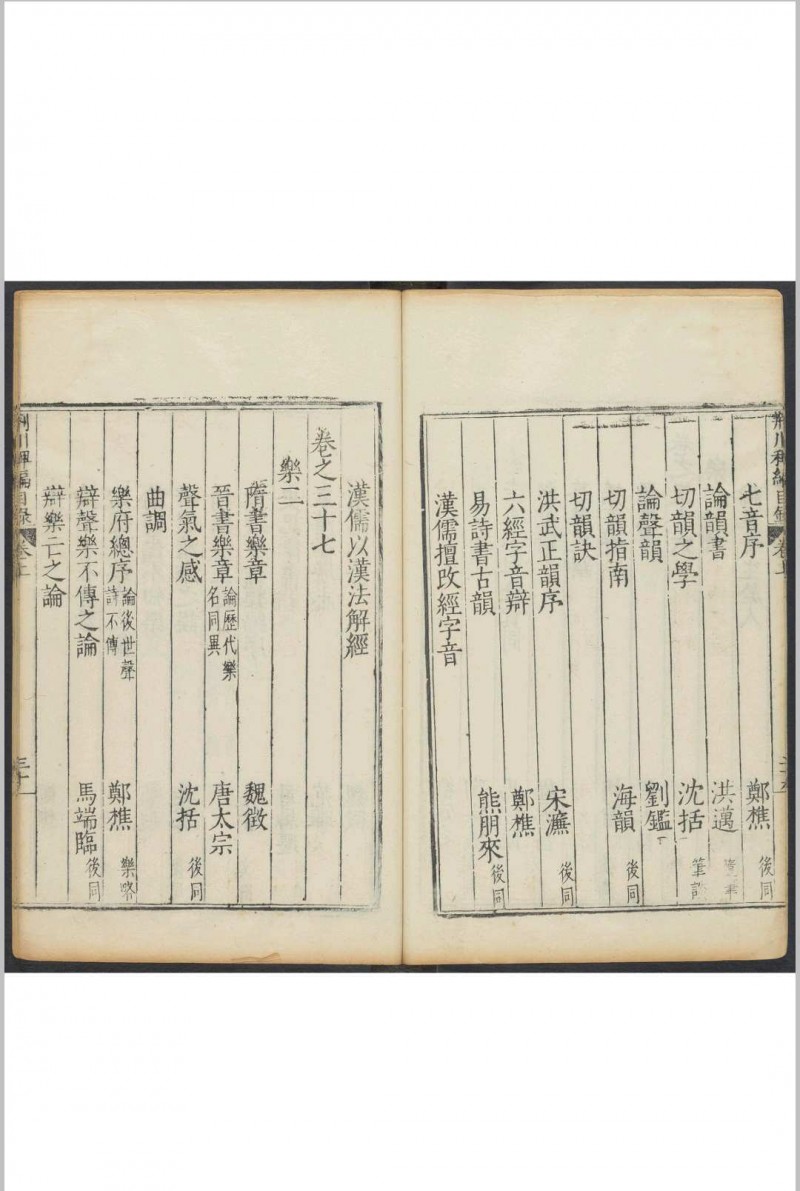 七音序 鄭樵 後同
論韻書 洪邁
切韻之學 沈括 筆談
論聲韻 劉鑑
切韻指南 海韻 後同
切韻訣
洪武正韻序 宋濂 後同
六經字音辯 鄭樵
易詩書古韻 熊朋來 後同
漢儒擅改經字音
漢儒以漢法解經
卷之三十七
樂二
隋書樂章 魏徵
晉書樂章 論歷代樂名同異 唐太宗
聲氣之感 沈括 後同
曲調
樂府總序 論後世聲詩不傳 鄭樵 樂略
辯聲樂不傳之論 馬端臨 後同
辯樂亡之論